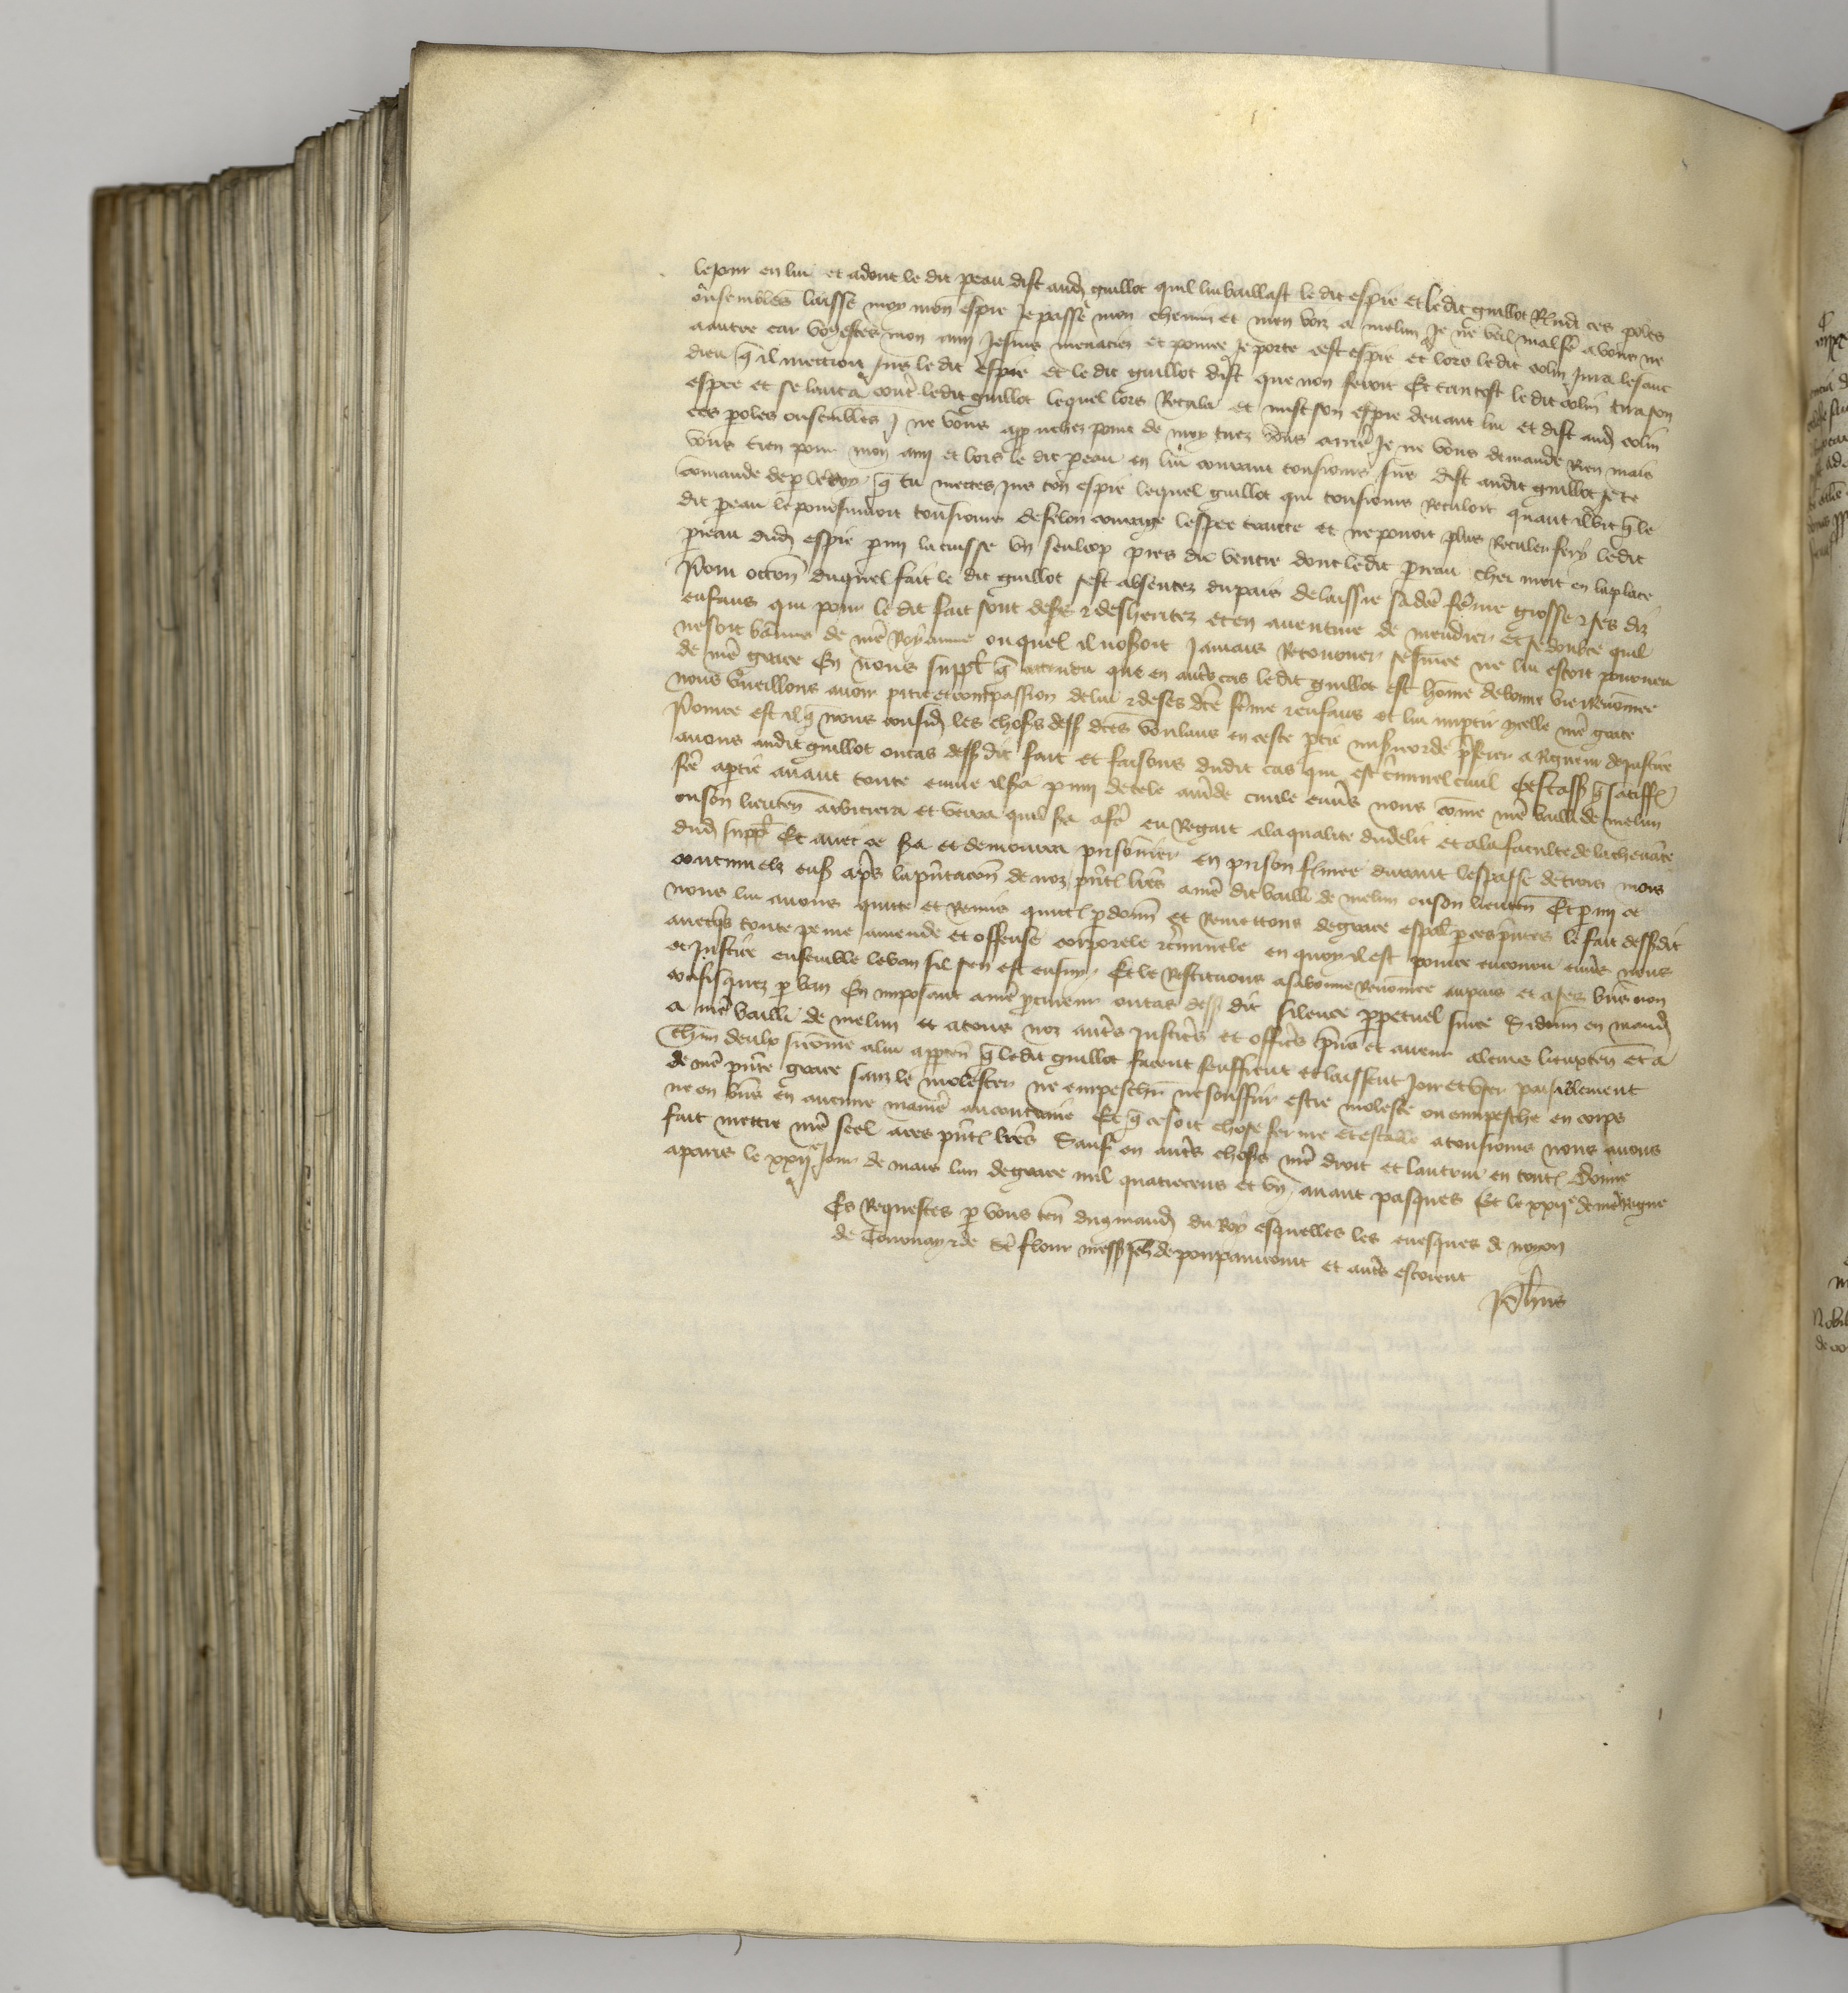 le jour en lui et adont le dit preau dist aud guillot quil lui baillast le dit espie et le dit guillot Rndi ces poles
ou semblables laisse moy mon espie Je passe mon chemin et men voiz a melun Je ne veil mal fe a vous ne
a autre car vous estes mon amy Je suis menaciez et pource Je porte cest espie et lors le dit colin Jura le sanc
dieu q il mettroit Jus le dit espie et le dit guillot dist que non feroit Et tantost le dit colin tira son
espee et se lanca contre le dit guillot lequel lors Recula et mist son espie devant lui et dist aud colin
ces poles ou semblables ne vous approuchez point de moy tirez vous arriere Je ne vous demande Rien mais
vous tien pour mon amy et lors le dit preau en lui courant tousiours sus dist audit guillot Je te
comande de p le Roy q tu mettes jus ton espie lequel guillot qui tousiours Reculoit quant il vit q le
dit preau le poursuivoit tousiours de felon courage lespee traitte et ne povoit plus Reculer fery le dit
preau dud espie pmy la cuisse un seul cop pres du ventre dont le dit preau cher mort en la place
Pour occon duquel fait le dit guillot sest absentez du pais delaissie sa dce feme grosse et ses diz
enfans qui pour le dit fait sont desers et desheritez et en aventure de mendier et se doubte quil
ne soit banniz de nre Royaume ou quel il noseroit Jamais Retourner se sur ce ne lui estoit pourveu
de nre grace En nous suppl q attendu que en autres cas le dit guillot est home de bonne vie Renomee
nous vueillons avoir pitie et compassion de lui et de ses dce feme et enfans et lui impartir ycelle nre grace
Pource est il q nous consid les choses dess dces voulans en ceste ptie misericorde pferer a Rigueur de justice
avons audit guillot ou cas dess dit fait et faisons dudit cas qui est criminel civil Et cas q satiffon
fce a partie avant toute euvre il sera pugny de tele amende civile envers nous come nre bailli de melun
ou son lieuten arbitrera et verra quil sera a fe eu Regart a la qualite du delit et a la faculte de la chevance
dud suppl Et avec ce sera et demourra prisonnier en prison fermee durant lespasse de trois mois
continuelz ens apres la pntacion de noz pntes lres a nre dit bailli de melun ou son lieuten Et pmy ce
nous lui avons quitte et Remis quitt pdonn et Remettons de grace espal p ces pntes le fait dess dit
avecques toute peine amende et offense corporele criminele en quoy il est pource encouru envers nous
et justice ensemble le ban sil sen est ensuy Et le Restituons a sa bonne Renomee au pais et a ses biens non
confisquez p ban En imposant a nre pcureur ou cas dess dit silence perpetuel sur ce Si donn en mand
a nre bailli de melun et a touz noz autres justiciers et officiers pns et avenir a leurs lieuxten et a
chun deulx si come a lui apptendra q le dit guillot facent seuffrent et laissent joir et user paisiblement
de nre pnte grace sanz le molester ne empeschier ne souffrir estre moleste ou empesche en corps
ne en biens en aucune maniere au contraire Et q ce soit chose ferme et estable a tousiours nous avons
fait mettre nre seel a ces pntes lres Sauf en autres choses nre droit et lautrui en toutes Donne
a paris le xxiie Jour de mars lan de grace mil quatrecens et un avant pasques Et le xxiie de nre Regne
Es Requestes p vous ten du comand du Roy esquelles les evesques de noyon
de Tournay et de st flour mess jeh de poupaincourt et autres estoient